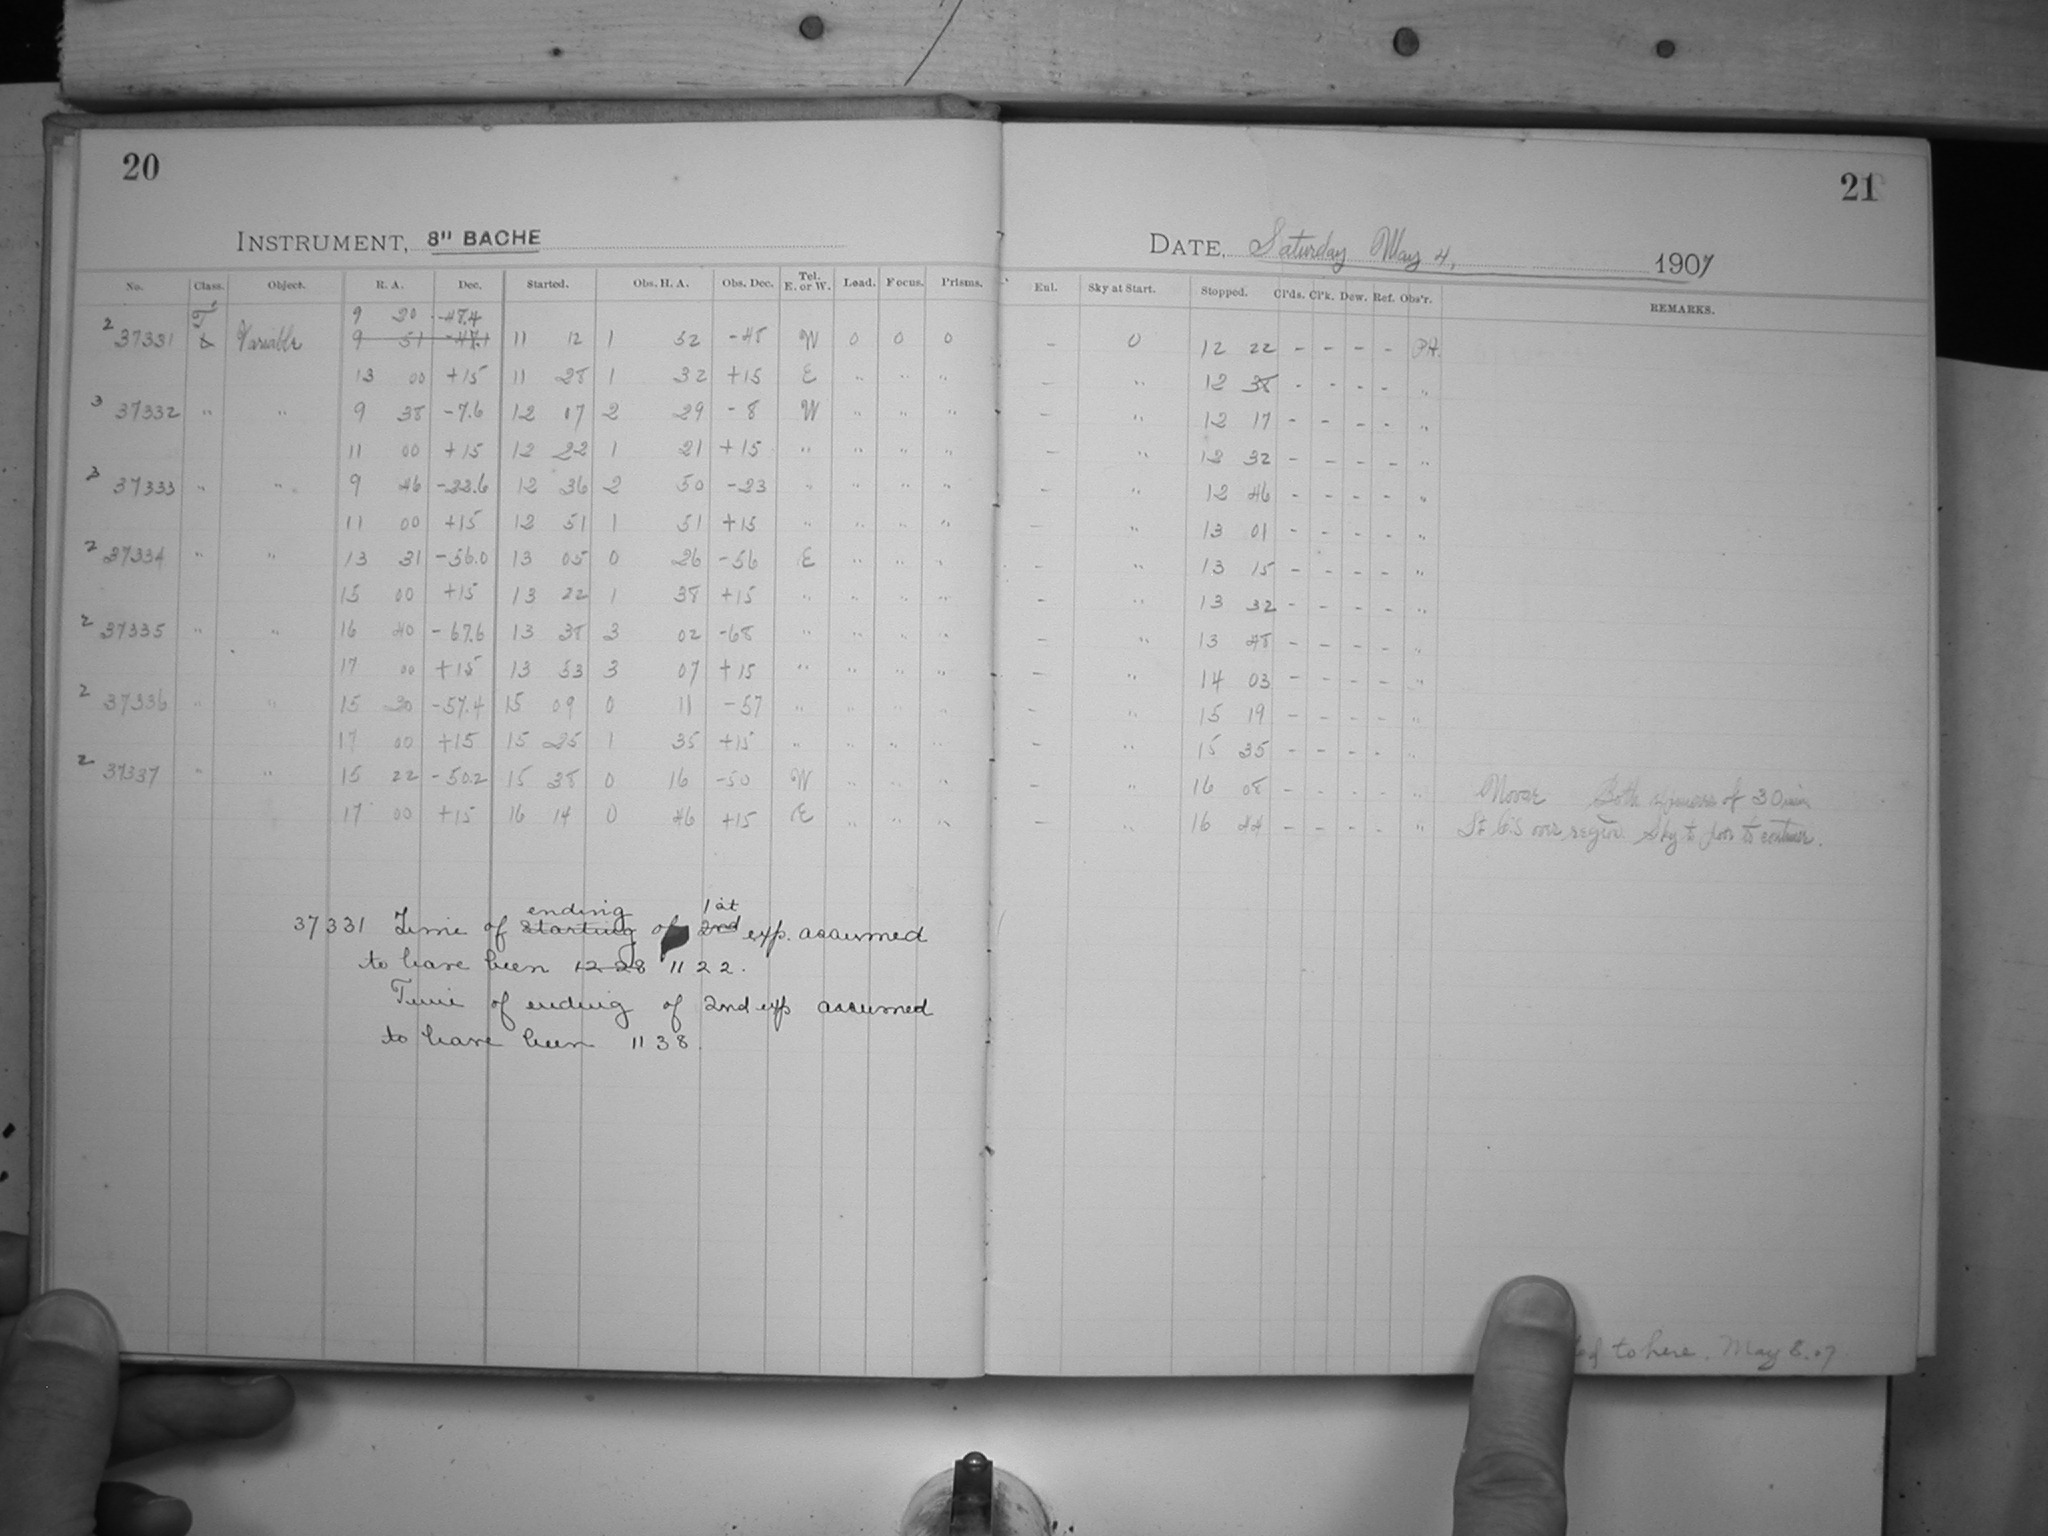 20
21
INSTRUMENT, 8" BACHE
DATE, Saturday May 4, 1907
No. Class. Object. R. A. Dec. Started. Obs. H. A. Obs. Dec. Tel. E. or W. Load. Focus. Prisms. Eul. Sky at Start. Stopped. Cl'ds. Cl'k. Dew. Ref. Obs'r. REMARKS.
9 20 -47.4
2 37331 Variable 9 51 -47.1 11 12 1 52 -48 W 0 0 0 - 0 12 22 - - - - P.H.
13 00 +15 11 28 1 32 +15 E " " " - " 12 38 - - - - "
3 37332 " " 9 38 -7.6 12 07 2 29 -8 W " " " - " 12 17 - - - - "
11 00 +15 12 22 1 21 +15 " " " " - " 12 32 - - - - "
3 37333 " " 9 46 -22.6 12 36 2 50 -23 " " " " - " 12 46 - - - - "
11 00 +15 12 51 1 51 +15 " " " " - " 13 01 - - - - "
2 37334 " " 13 31 -56.0 13 05 0 26 -56 E " " " - " 13 15 - - - - "
15 00 +15 13 22 1 38 +15 " " " " - " 13 32 - - - - "
2 37335 " " 16 40 -67.6 13 38 3 02 -68 " " " " - " 13 48 - - - - "
17 00 +15 13 53 3 07 +15 " " " " - " 14 03 - - - - "
2 37336 " " 15 20 -57.4 15 09 0 11 -57 " " " " - " 15 19 - - - - "
17 00 +15 15 25 1 35 +15 " " " " - " 15 35 - - - - "
2 37337 " " 15 22 -50.2 15 38 0 16 -50 W " " " - " 16 08 - - - - " Novae Both of 30 min
17 00 +15 16 14 0 46 +15 E " " " - " 16 44 - - - - " St. C's over region. Sky to poor to continue.
ending 1st
37331 Time of starting of 2nd exp. assumed
to have been 12 28 11 22.
Time of ending of 2nd exp assumed
to have been 11 38.
to here. May 8. 07